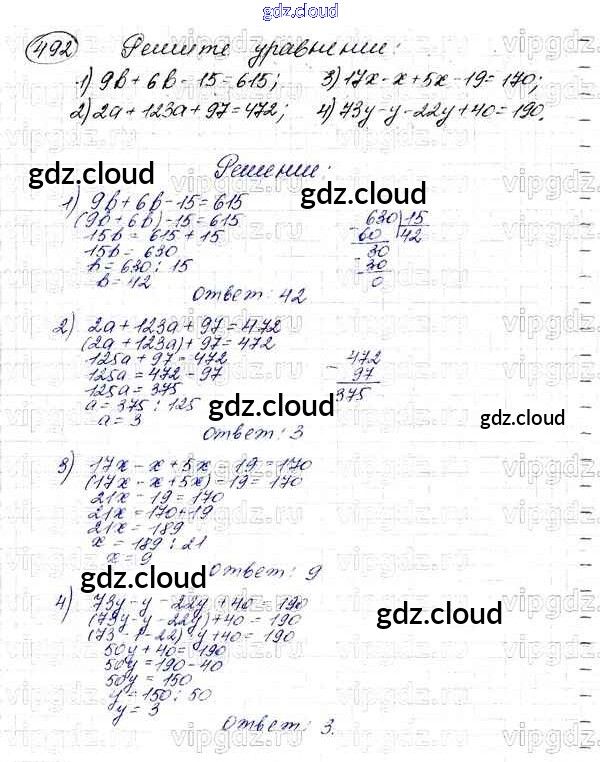 gdz.cloud
492 Решите уравнении:
1) 9b+6b-15=615; 3) 17x-x+5x-19=170;
2) 2a+123a+97=472; 4) 73y-y-22y+40=190.
Решение:
gdz.cloud
gdz.cloud
1) 9b+6b-15=615
(9b+6b)-15=615
15b=615+15
15b=630
b=630:15
b=42
630 15
60 42
-30
30
0
Ответ: 42
2) 2a+123a+97=472
(2a+123a)+97=472
125a+97=472
125a=472-97
125a=375
a=375:125
a=3
-472
97
375
gdz.cloud
gdz.cloud
Ответ: 3
3) 17x-x+5x-19=170
(17x-x+5x)-19=170
21x-19=170
21x=170+19
21x=189
x=189:21
x=9
Ответ: 9
gdz.cloud
gdz.cloud
4) 73y-y-22y+40=190
(73y-y-22y)+40=190
(73-1-22)y+40=190
50y+40=190
50y=190-40
50y=150
y=150:50
y=3
Ответ: 3.
vipgdz.ru